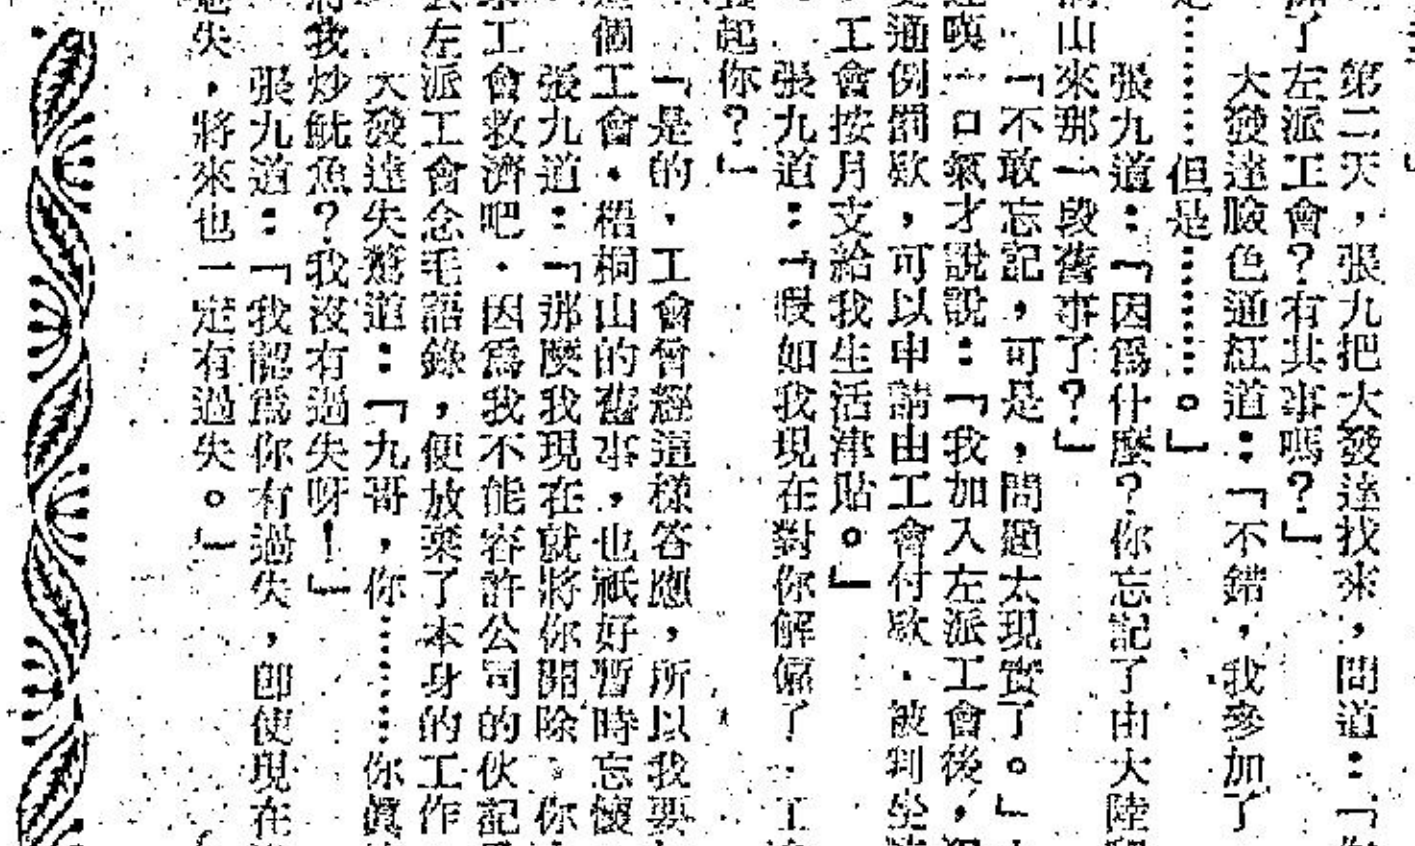 第二天，張九把大發達找來，問道：「你
了左派工會？有其事嗎？」
大發達臉色通紅道：「不錯，我參加了
⋯⋯⋯但是⋯⋯⋯。」
張九道：「因爲什麼？你忘記了由大陸
山來那一段舊事了？」
「不敢忘記，可是，問題太現實了。」
嘆一口氣才說說：「我加入左派工會後，
通例罰欵，可以申請由工會付欵，被判坐
工會按月支給我生活津貼。」
張九道：「假如我現在對你解僱了，工
起你？」
「是的，工會曾經這樣答應，所以我要
個工會，梧桐山的舊事，也祇好暫時忘懷
張九道：「那麼我現在就將你開除。你
工會救濟吧，因爲我不能容許公司的伙記
左派工會念毛語錄，便放棄了本身的工作
大發達失驚道：「九哥，你⋯⋯⋯你眞
我炒魷魚？我沒有過失呀！」
張九道：「我認爲你有過失，卽使現在
失，將來也一定有過失。」